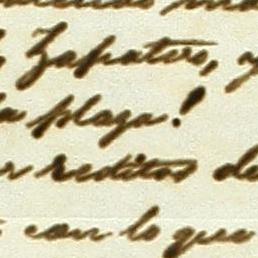 Zapatero, y
la plaza!
reditos de
con lo que